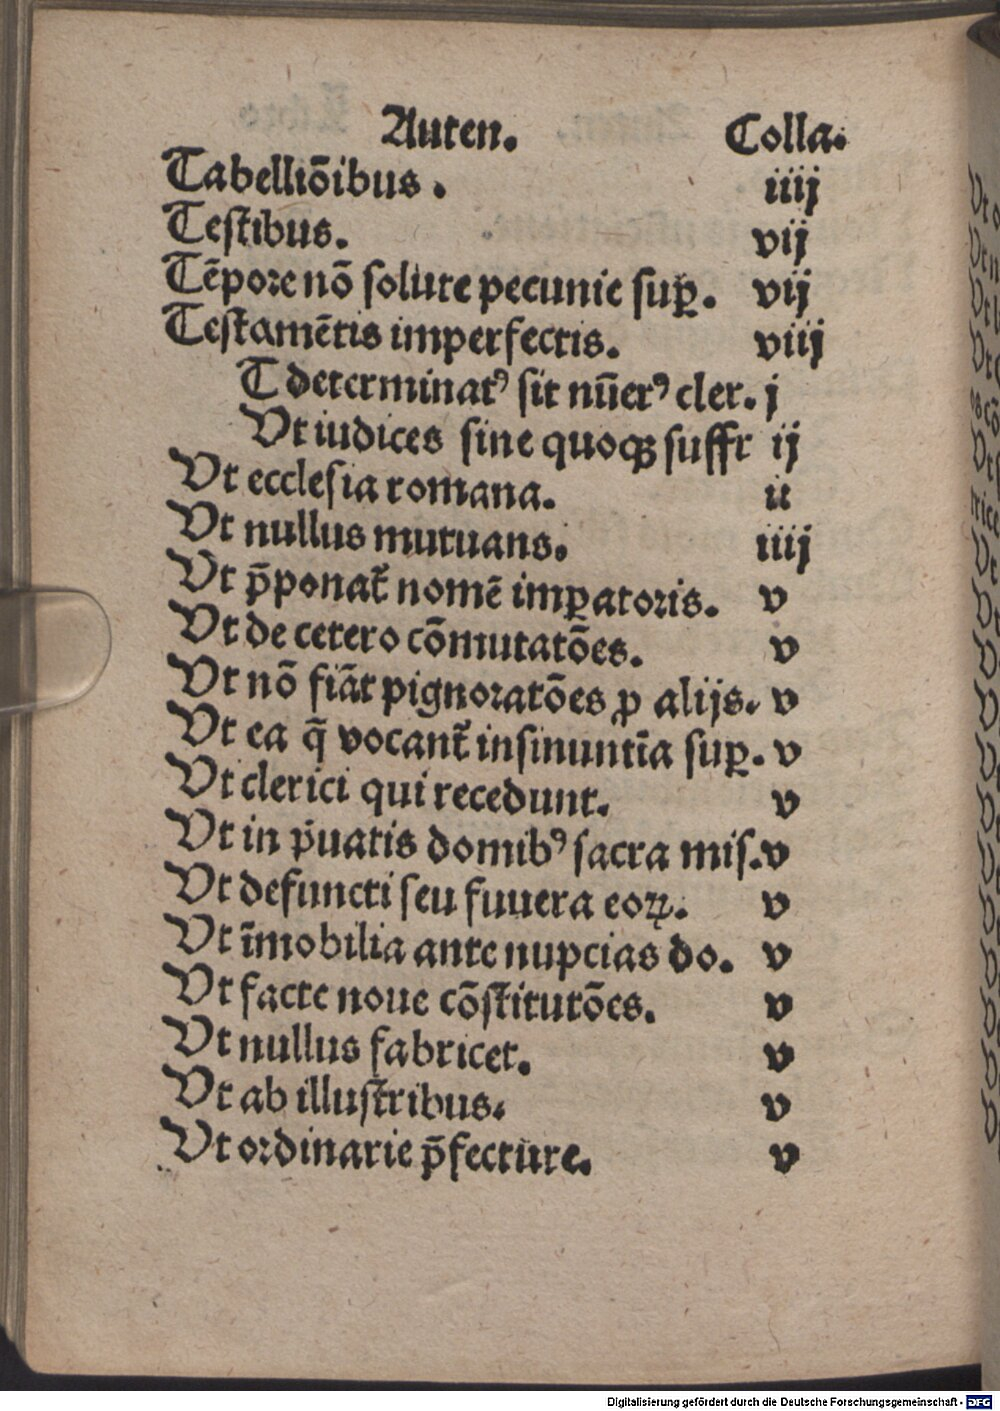 Auten. Colla.
Tabelliōibus. iiij
Testibus. vij
Tēpore nō solute pecunie suꝑ. vij
Testamētis imperfectis. viij
T determinatꝰ sit nūerꝰ cler. j
Vt iudices sine quoqꝫ suffr ij
Vt ecclesia romana. ii
Vt nullus mutuans. iiij
Vt p̄ponat̄ nomē imꝑatoris. v
Vt de cetero cōmutatōes. v
Vt nō fiāt pignoratōes ꝓ alijs. v
Vt ea q̄ vocant̄ insinuntīa suꝑ. v
Vt clerici qui recedunt. v
Vt in p̓uatis domibꝰ sacra mis. v
Vt defuncti seu fuuera eoꝝ. v
Vt īmobilia ante nupcias do. v
Vt facte noue cōstitutōes. v
Vt nullus fabricet. v
Vt ab illustribus. v
Vt ordinarie p̄fecture. v
Digitalisierung gefördert durch die Deutsche Forschungsgemeinschaft - DFG